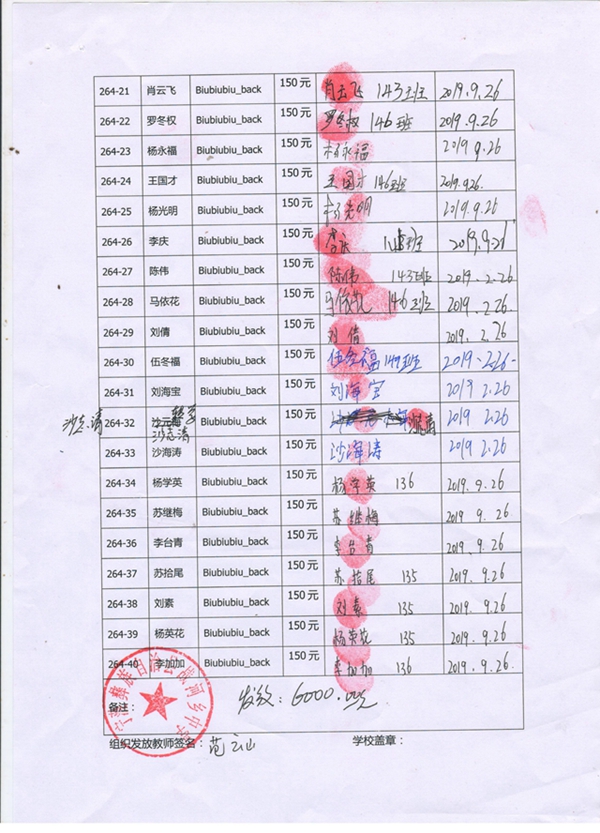 264-21 肖云飞 Biubiubiu_back 150元 肖云飞 143班 2019.9.26
264-22 罗冬权 Biubiubiu_back 150元 罗冬权 146班 2019.9.26
264-23 杨永福 Biubiubiu_back 150元 杨永福 2019.9.26
264-24 王国才 Biubiubiu_back 150元 王国才 146班 2019.9.26.
264-25 杨光明 Biubiubiu_back 150元 杨光明 2019.9.26
264-26 李庆 Biubiubiu_back 150元 2019.9.26
264-27 陈伟 Biubiubiu_back 150元 陈伟 143班 2019.2.26
264-28 马依花 Biubiubiu_back 150元 马依花 146班 2019.2.26
264-29 刘倩 Biubiubiu_back 150元 刘倩 2019.2.26
264-30 伍冬福 Biubiubiu_back 150元 伍冬福 149班 2019.2.26
264-31 刘海宝 Biubiubiu_back 150元 刘海宝 2019 2.26
沙志清 264-32 沙元梅 沙志清 Biubiubiu_back 150元 2019 2.26
264-33 沙海涛 Biubiubiu_back 150元 沙海涛 2019 2.26
264-34 杨学英 Biubiubiu_back 150元 杨学英 136 2019.9.26
264-35 苏继梅 Biubiubiu_back 150元 苏继梅 2019.9.26
264-36 李台青 Biubiubiu_back 150元 李台青 2019.9.26
264-37 苏拾尾 Biubiubiu_back 150元 苏拾尾 135 2019.9.26
264-38 刘素 Biubiubiu_back 150元 刘素 135 2019.9.26
264-39 杨英花 Biubiubiu_back 150元 杨英花 135 2019.9.26
264-40 李加加 Biubiubiu_back 150元 李加加 136 2019.9.26
备注： 发放：6000.00元
组织发放教师签名：范云山 学校盖章：